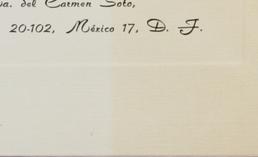 va. del Carmen Soto,
20-102, México 17, D. F.